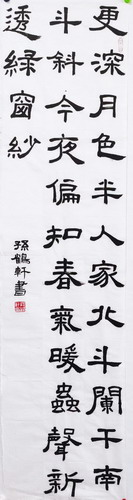 更深月色半人家北斗闌干南
斗斜今夜偏知春氣暖蟲聲新
透緑窗紗
孫鶴軒書